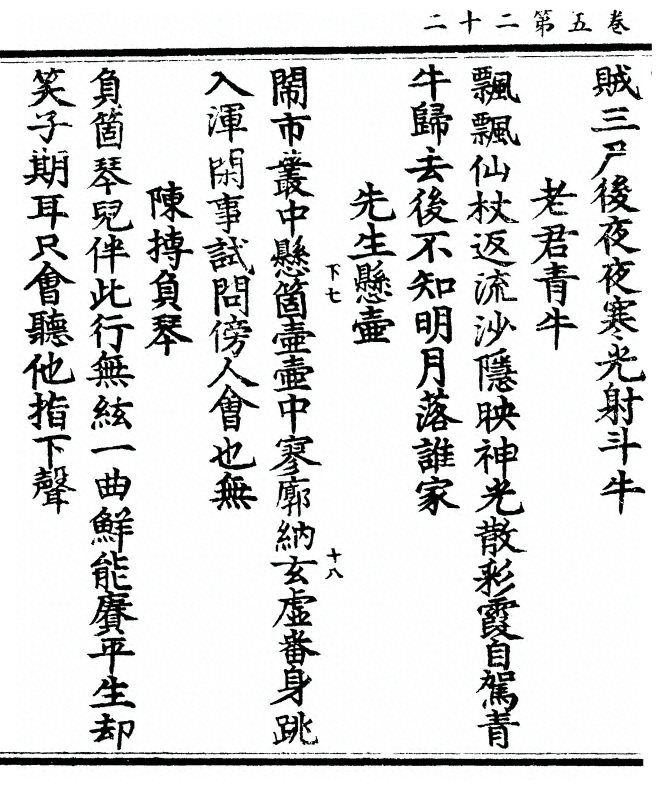 卷五第二十二
賊三尸後夜夜寒光射斗牛
老君青牛
飄飄仙杖返流沙隱映神光散彩霞自駕青
牛歸去後不知明月落誰家
先生懸壺
下七
鬧市叢中懸箇壺壺中寥廓納玄虛番身跳
十八
入渾閑事試問傍人會也無
陳摶負琴
負箇琴兒伴此行無絃一曲鮮能賡平生却
笑子期耳只會聽他指下聲